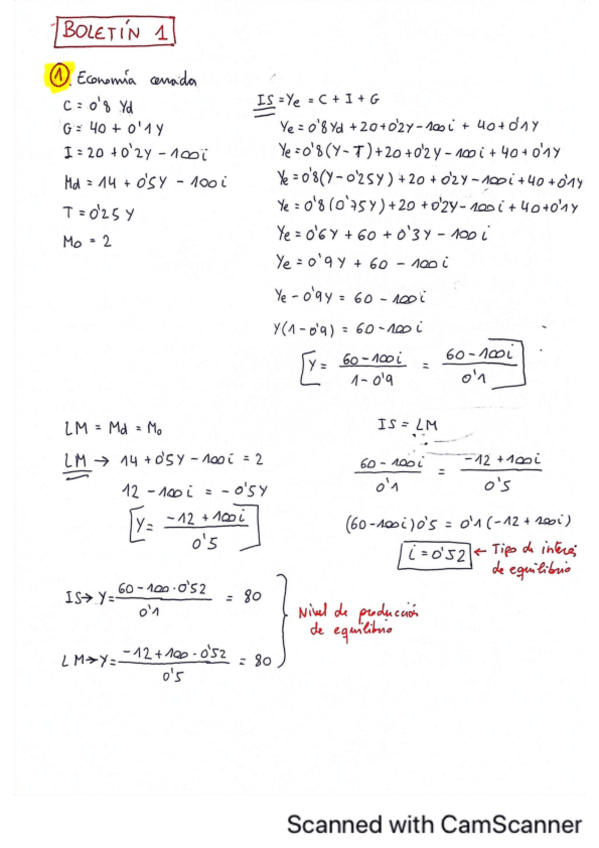 BOLETÍN 1
1. Economía cerrada
C = 0'8 Yd
G = 40 + 0'1Y
I = 20 + 0'2Y - 100i
Md = 14 + 0'5Y - 100i
T = 0'25 Y
Mo = 2
IS = Ye = C + I + G
Ye = 0'8Yd + 20 + 0'2Y - 100i + 40 + 0'1Y
Ye = 0'8(Y - T) + 20 + 0'2Y - 100i + 40 + 0'1Y
Ye = 0'8(Y - 0'25Y) + 20 + 0'2Y - 100i + 40 + 0'1Y
Ye = 0'8(0'75Y) + 20 + 0'2Y - 100i + 40 + 0'1Y
Ye = 0'6Y + 60 + 0'3Y - 100i
Ye = 0'9Y + 60 - 100i
Ye - 0'9Y = 60 - 100i
Y(1 - 0'9) = 60 - 100i
Y = 60 - 100i / 1 - 0'9 = 60 - 100i / 0'1
LM = Md = Mo
LM → 14 + 0'5Y - 100i = 2
12 - 100i = - 0'5Y
Y = -12 + 100i / 0'5
IS = LM
60 - 100i / 0'1 = -12 + 100i / 0'5
(60 - 100i) 0'5 = 0'1 (-12 + 100i)
i = 0'52 ← Tipo de interés
de equilibrio
IS → Y = 60 - 100 · 0'52 / 0'1 = 80
LM → Y = -12 + 100 · 0'52 / 0'5 = 80
Nivel de producción
de equilibrio
Scanned with CamScanner